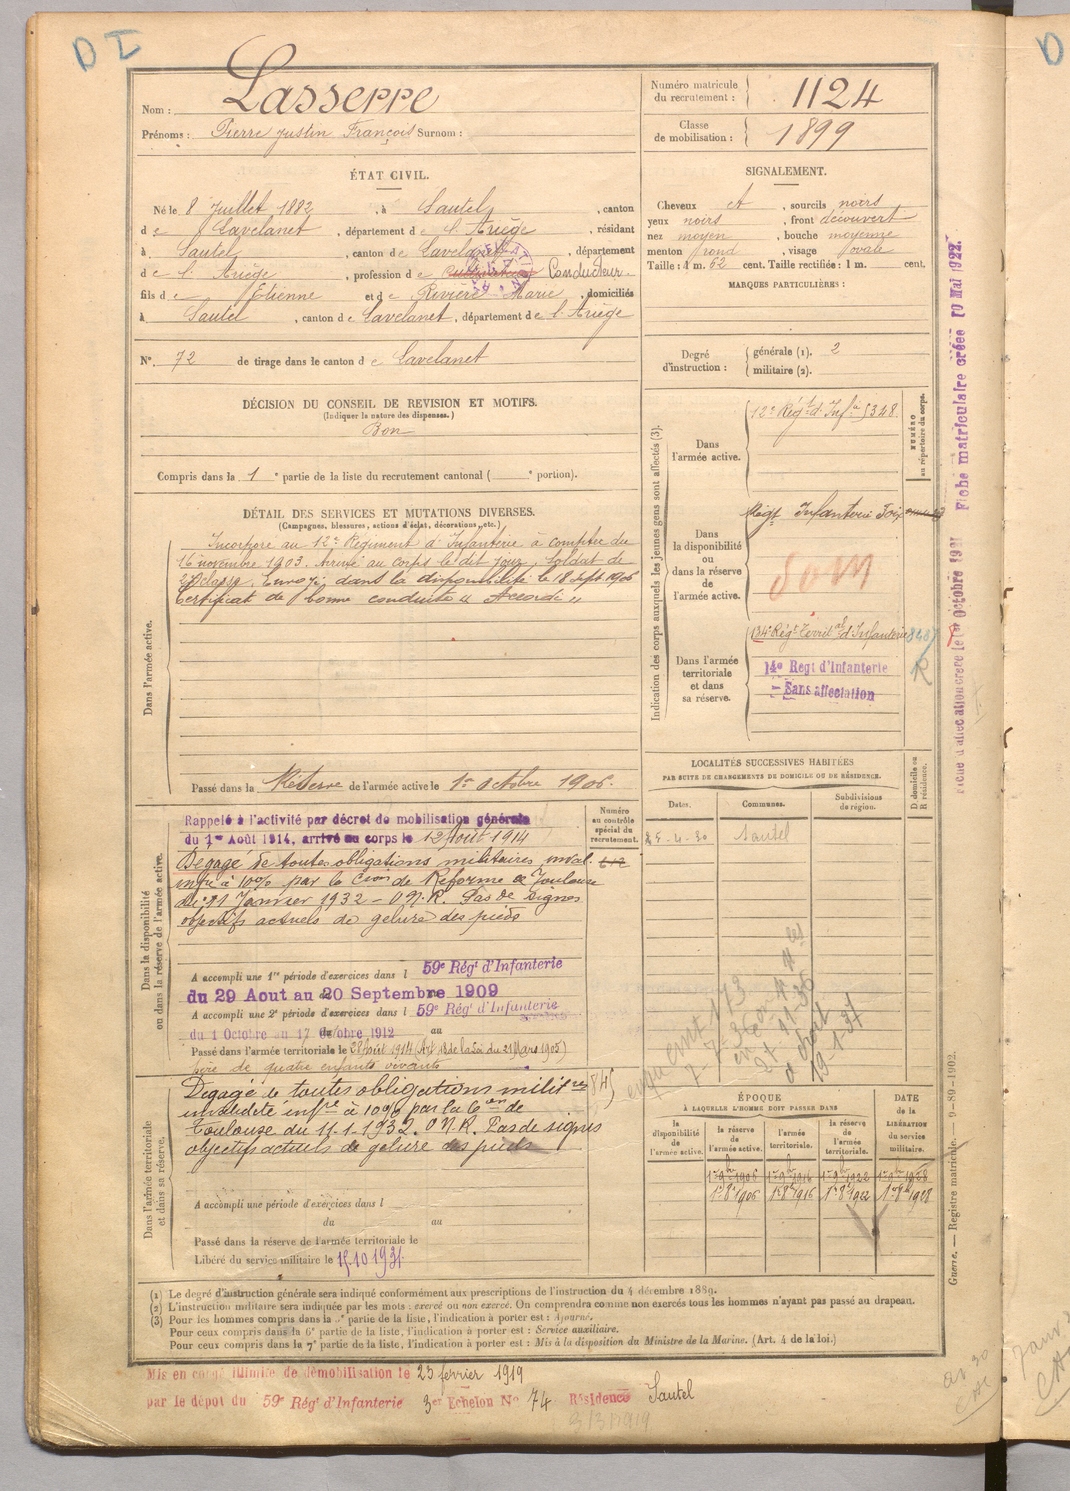 D I
Nom : Lasserre
Prénoms : Pierre Justin François Surnom :
Numéro matricule du recrutement : 1124
Classe de mobilisation : 1899
ÉTAT CIVIL.
Né le 8 Juillet 1882, à Sautel, canton
de Lavelanet, département de l'Ariège, résidant
à Sautel, canton de Lavelanet, département
de l'Ariège, profession de Cultivateur Conducteur
fils de Etienne et de Rivière Marie, domiciliés
à Sautel, canton de Lavelanet, département de l'Ariège
N° 72 de tirage dans le canton de Lavelanet
SIGNALEMENT.
Cheveux et, sourcils noirs
yeux noirs, front découvert
nez moyen, bouche moyenne
menton rond, visage ovale
Taille : 1 m. 62 cent. Taille rectifiée : 1 m. cent.
MARQUES PARTICULIÈRES :
Degré d'instruction : générale (1). 2
militaire (2).
DÉCISION DU CONSEIL DE REVISION ET MOTIFS.
(Indiquer la nature des dispenses.)
Bon
Compris dans la 1e partie de la liste du recrutement cantonal ( e portion).
DÉTAIL DES SERVICES ET MUTATIONS DIVERSES.
(Campagnes, blessures, actions d'éclat, décorations, etc.)
Dans l'armée active.
Incorporé au 12e Régiment d'Infanterie à compter du
16 novembre 1903. Arrivé au corps le dit jour, Soldat de
2e classe. Envoyé dans la disponibilité le 18 sept 1906
Certificat de bonne conduite « Accordé »
Passé dans la Réserve de l'armée active le 1er Octobre 1906.
Indication des corps auxquels les jeunes gens sont affectés (3).
NUMÉRO au répertoire du corps.
Dans l'armée active.
12e Régt d'Infie 5348
Dans la disponibilité ou dans la réserve de l'armée active.
Régt Infanterie Foix
Dans l'armée territoriale et dans sa réserve.
134e Régt Territal d'Infanterie
14e Regt d'Infanterie
Sans affectation
R
Fiche matriculaire créée 10 Mai 1922.
LOCALITÉS SUCCESSIVES HABITÉES
PAR SUITE DE CHANGEMENTS DE DOMICILE OU DE RÉSIDENCE.
D domicile ou R résidence.
Dates. Communes. Subdivisions de région.
25-4-30 Sautel
Dans la disponibilité ou dans la réserve de l'armée active.
Numéro au contrôle spécial du recrutement.
Rappelé à l'activité par décret de mobilisation générale
du 1er Août 1914, arrivé au corps le 12 Août 1914
Dégagé de toutes obligations militaires inval.
infre à 10% par la Cion de Réforme de Toulouse
du 11 Janvier 1932 - O.N.R. Pas de signes
objectifs actuels de gelure des pieds
A accompli une 1re période d'exercices dans l 59e Régt d'Infanterie
du 29 Aout au 20 Septembre 1909
A accompli une 2e période d'exercices dans l 59e Régt d'Infanterie
du 1 Octobre au 17 Octobre 1912 au
Passé dans l'armée territoriale le 28 Août 1914 (Art. 48 de la Loi du 21 Mars 1905)
père de quatre enfants vivants
Dans l'armée territoriale et dans sa réserve.
Dégagé de toutes obligations militres
invalidité infre à 10% par la Con de
Toulouse du 11.1.1932. O.N.R. Pas de signes
objectifs actuels de gelure des pieds
A accompli une période d'exercices dans l
du au
Passé dans la réserve de l'armée territoriale le
Libéré du service militaire le 15.10.1931
ÉPOQUE
À LAQUELLE L'HOMME DOIT PASSER DANS
DATE de la LIBÉRATION du service militaire.
la disponibilité de l'armée active. la réserve de l'armée active. l'armée territoriale. la réserve de l'armée territoriale.
1er 9bre 1906 1er 9bre 1916 1er 9bre 1922 1er 9bre 1928
1er 8bre 1906 1er 8bre 1916 1er 8bre 1922 1er 8bre 1928
Guerre. — Registre matricule. — 9-89-1902.
(1) Le degré d'instruction générale sera indiqué conformément aux prescriptions de l'instruction du 4 décembre 1889.
(2) L'instruction militaire sera indiquée par les mots : exercé ou non exercé. On comprendra comme non exercés tous les hommes n'ayant pas passé au drapeau.
(3) Pour les hommes compris dans la 5e partie de la liste, l'indication à porter est : Ajourné.
Pour ceux compris dans la 6e partie de la liste, l'indication à porter est : Service auxiliaire.
Pour ceux compris dans la 7e partie de la liste, l'indication à porter est : Mis à la disposition du Ministre de la Marine. (Art. 4 de la loi.)
Mis en congé illimité de démobilisation le 23 fevrier 1919
par le dépot du 59e Régt d'Infanterie 3er Echelon No 74 Résidence Sautel
3/3/1919